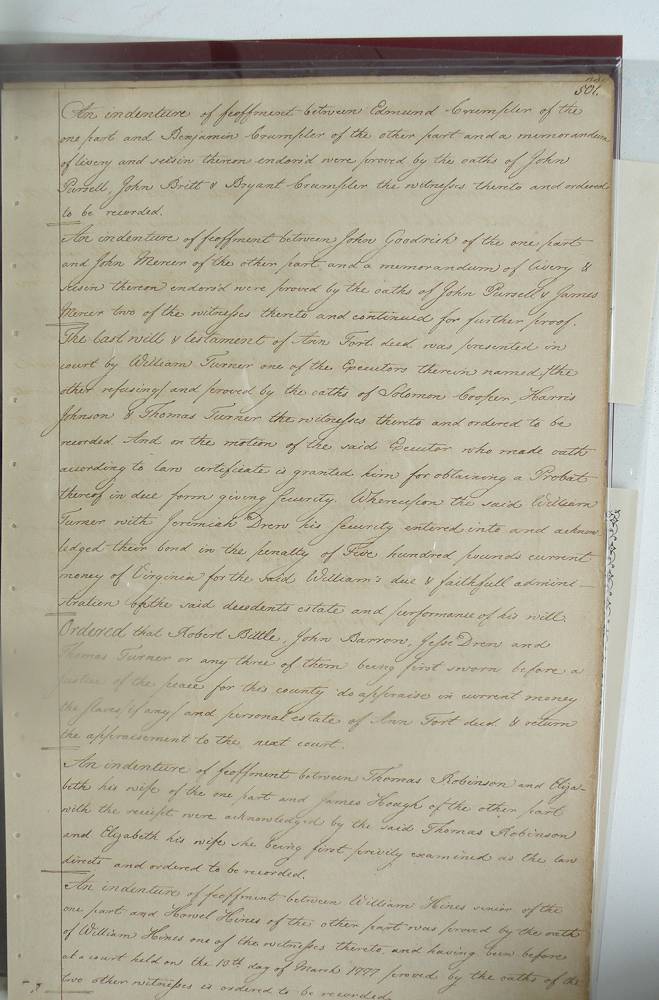 501.
An indenture of feoffment between Edmund Crumpler of the
one part and Benjamin Crumpler of the other part and a memorandum
of livery and seisin thereon endors'd were proved by the oaths of John
Pursell, John Britt & Bryant Crumpler the witnesses thereto and ordered
to be recorded.
An indenture of feoffment between John Goodrich of the one part
and John Mercer of the other part and a memorandum of livery &
seisin thereon endors'd were proved by the oaths of John Pursell & James
Mercer two of the witnesses thereto and continued for further proof.
The last will & testament of Ann Fort decd was presented in
court by William Turner one of the Executors therein named /the
other refusing/ and proved by the oaths of Solomon Cooper, Harris
Johnson & Thomas Turner the witnesses thereto and ordered to be
recorded And on the motion of the said Executor who made oath
according to law certificate is granted him for obtaining a Probat
thereof in due form giving security. Whereupon the said William
Turner with Jeremiah Drew his security entered into and acknow
ledged their bond in the penalty of Five hundred pounds current
money of Virginia for the said William's due & faithfull admini-
stration of the said decedents estate and performance of his will.
Ordered that Robert Bittle, John Barrow, Jesse Drew and
Thomas Turner or any three of them being first sworn before a
justice of the peace for this county do appraise in current money
the slaves /if any/ and personal estate of Ann Fort decd & return
the appraisement to the next court.
An indenture of feoffment between Thomas Robinson and Eliza-
beth his wife of the one part and James Hough of the other part
with the receipt were acknowledged by the said Thomas Robinson
and Elizabeth his wife she being first privily examined as the law
directs and ordered to be recorded.
An indenture of feoffment between William Hines senior of the
one part and Howel Hines of the other part was proved by the oath
of William Hines one of the witnesses thereto and having been before
at a court held on the 13th day of March 1777 proved by the oaths of the
two other witnesses is ordered to be recorded